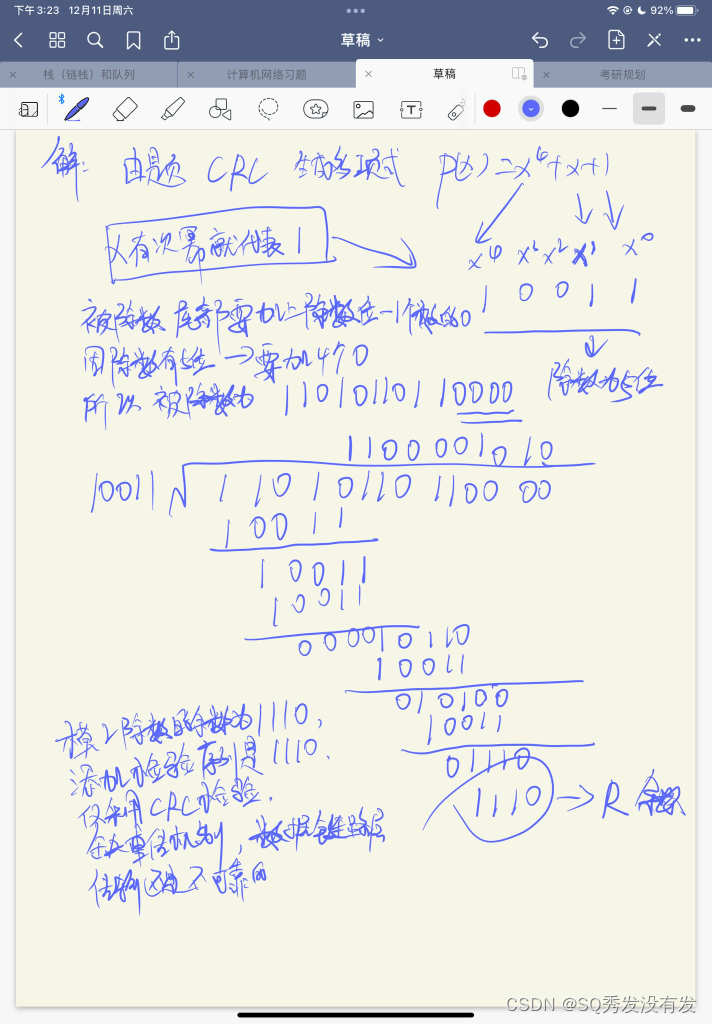 下午3:23 12月11日周六
92%
草稿
栈（链栈）和队列
计算机网络习题
草稿
考研规划
解： 由题 CRC 生成多项式 P(x)=x⁴+x+1
有次幂就代表1
x⁴ x³ x² x¹ x⁰
1 0 0 1 1
被除数 尾部要加上除数位-1个数的0
因除数有5位 → 要加4个0
除数为5位
所以 被除数为 11010110110000
1100001010
10011 11010110110000
10011
10011
10011
000010110
10011
010100
10011
01110
1110 → R 余数
模2除数的余数为1110，
添加检验序列是1110.
仅采用CRC检验，
缺重传机制，数据链路层
传输还是不可靠的
CSDN @SQ秀发没有发